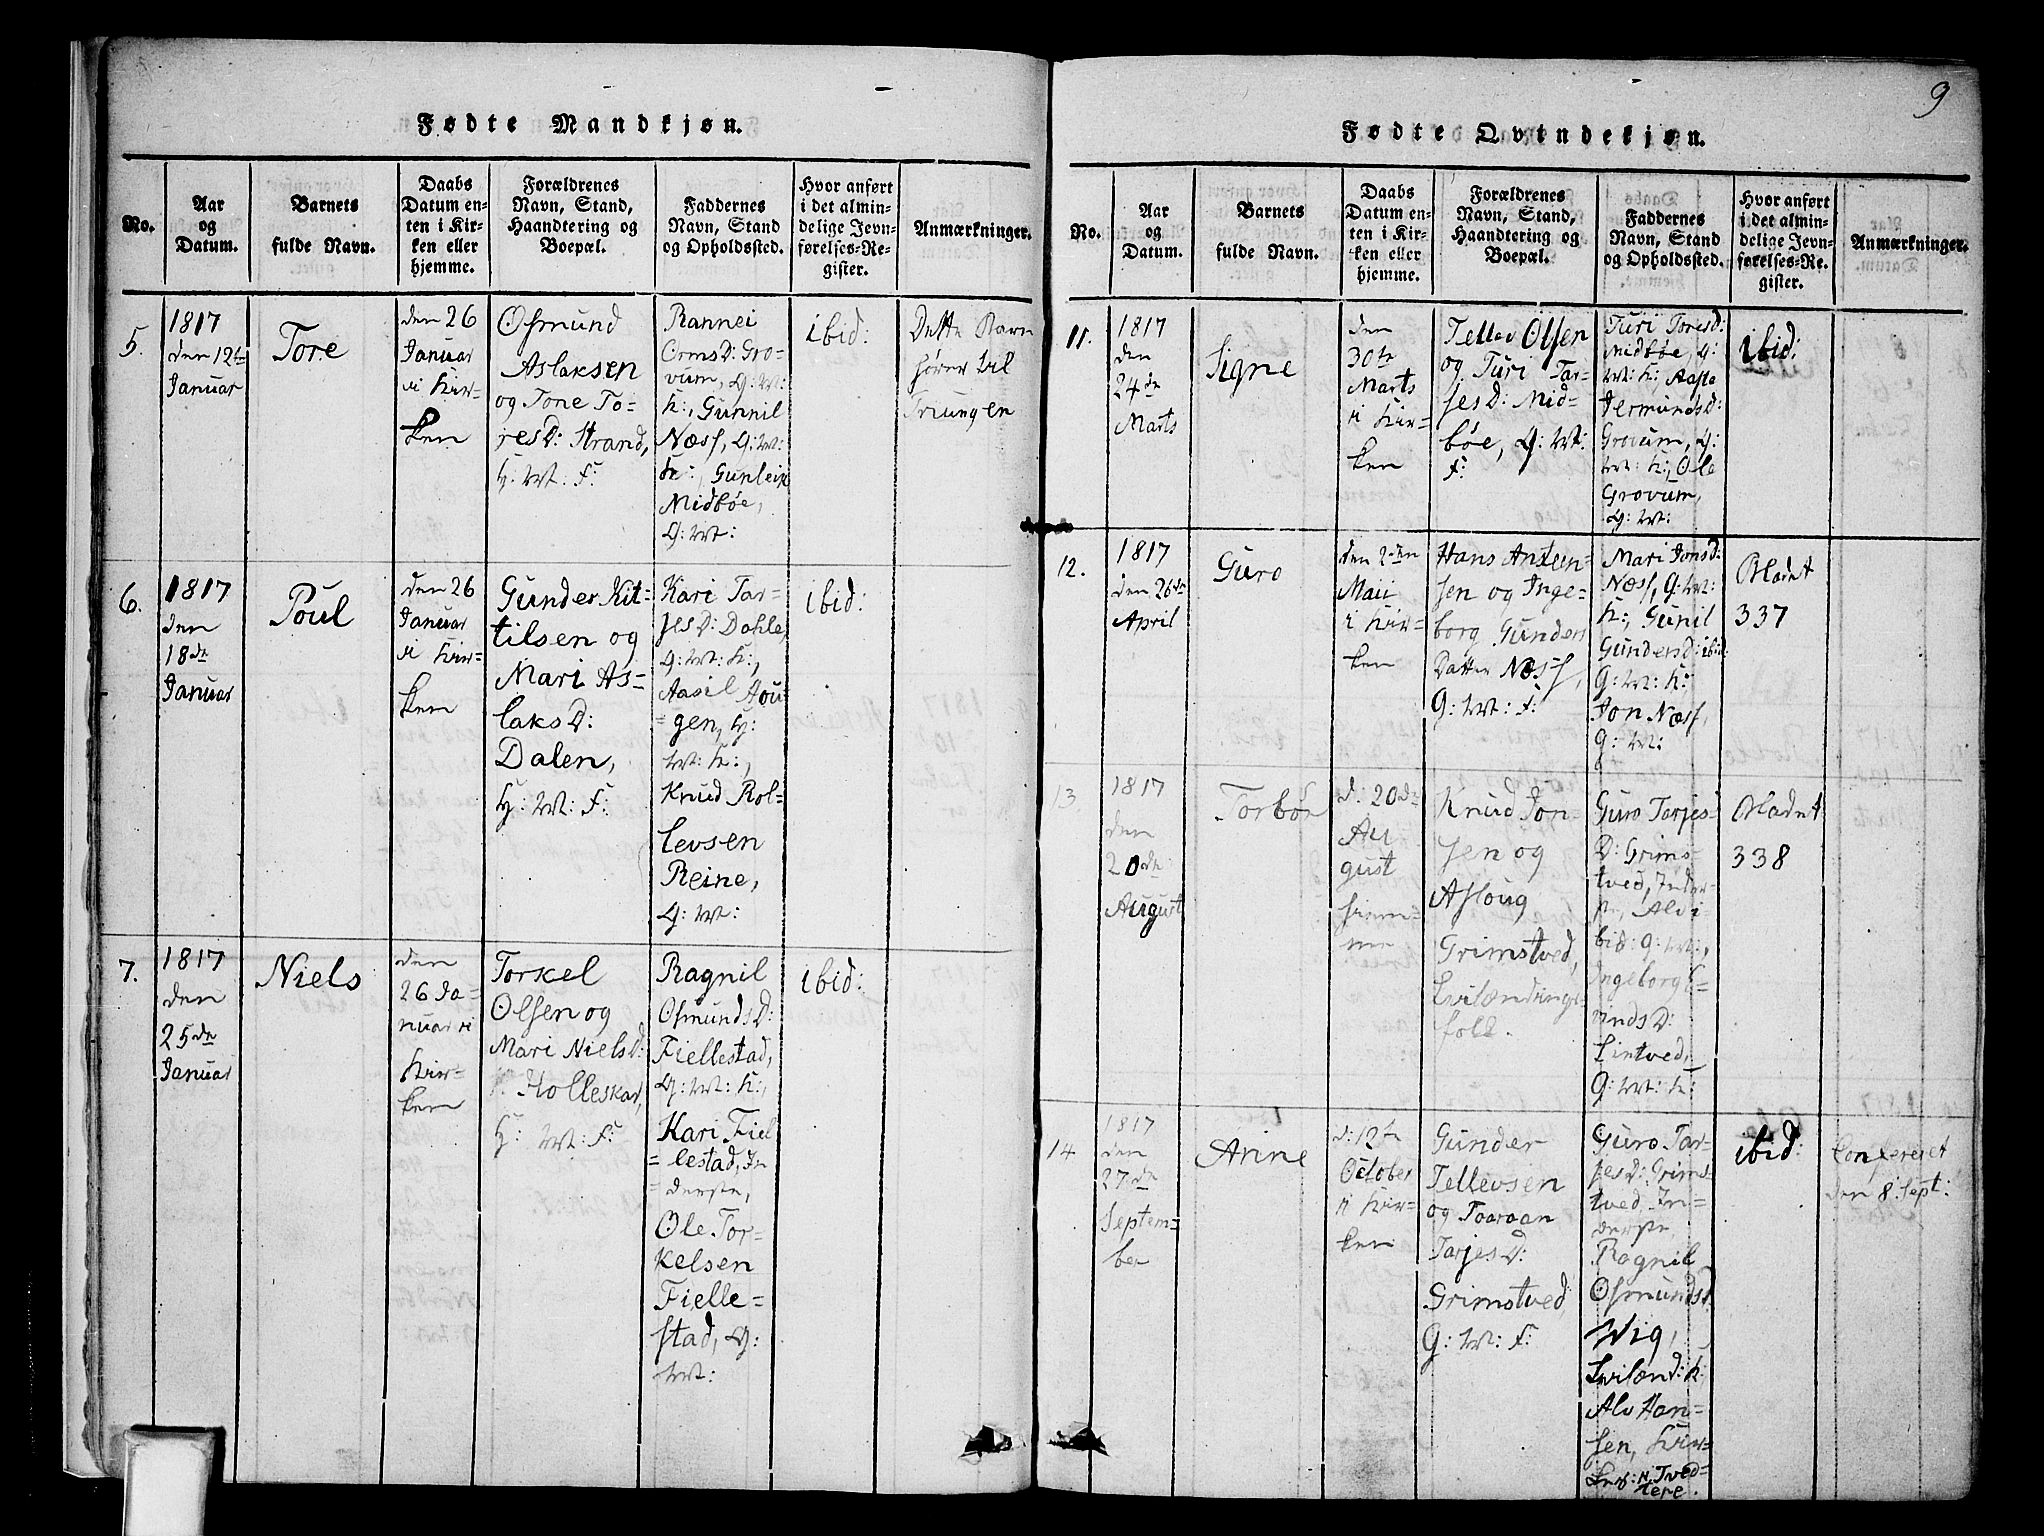 Fødte Mandkjøn.
No.
Aar
og
Datum.
Barnets
fulde Navn.
Daabs
Datum en-
ten i Kir-
ken eller
hjemme.
Forældrenes
Navn, Stand,
Haandtering og
Boepæl.
Faddernes
Navn, Stand
og Opholdssted.
Hvor anført
i det almin-
delige Jevn-
førelses-Re-
gister.
Anmærkninger.
5.
1817
den 12te
Januar
Tore
den 26
Januar
i Kir-
ken
Osmund
Aslaksen
og Tone To-
resD: Strand,
H: W: F:
Rannei
OrmsD: Gro-
vum, G: W:
K:, Gunnil
Næss, G: W:
K:, Gunleik
Midbøe,
G: W:
ibid:
Dette Barn
hører til
Triungen
6.
1817
den
18de
Januar
Poul
den 26
Januar
i Kir-
ken
Gunder Kit-
tilsen og
Mari As-
laksD:
Dalen,
H: W: F:
Kari Tar-
jesD: Dahle,
G: W: K:,
Aasil Hou-
gen, H:
W: K:,
Knud Rol-
levsen
Reine,
G: W:
ibid:
7.
1817
den
25de
Januar
Niels
den
26 Ja-
nuar i
Kir-
ken
Torkel
Olsen og
Mari NielsD:
Holleskar,
H: W: F:
Ragnil
OsmundsD:
Fiellestad,
G: W: K:,
Kari Fiel
=lestad, In
=derste,
Ole Tor-
kelsen
Fielle=
stad, G:
W:
ibid:
9
Fødte Qvindekjøn.
No.
Aar
og
Datum.
Barnets
fulde Navn.
Daabs
Datum en-
ten i Kir-
ken eller
hjemme.
Forældrenes
Navn, Stand,
Haandtering og
Boepæl.
Faddernes
Navn, Stand
og Opholdssted.
Hvor anført
i det almin-
delige Jevn-
førelses-Re-
gister.
Anmærkninger.
11.
1817
den
24de
Marts
Signe
den
30te
Marts
i Kir-
ken
Tellev Olsen
og Turi Tar-
jesD: Mid-
bøe, G: W:
F:
Turi ToresD:
Midbøe, G:
W: K:, Aaste
JermundsD:
Grovum, G:
W: K:, Ole
Grovum,
G: W:
ibid:
12.
1817
den 26de
April
Guro
den 2den
Maii
i Kir-
ken
Hans Ansten-
sen og Inge-
borg Gunders
Datter Næss,
G: W: F:
Mari JonsD:
Næss, G: W:
K:, Gunil
GundersD: ibid:
G: W: K:
Jon Næss,
G: W:
Bladet
337
13.
1817
den
20de
August
Torbør
d: 20de
Au
gust
hiem-
me
Knud Jon-
sen og
Asloug
Grimstved,
Qvilændings-
folk.
Guro Tarjes
D: Grims-
tved, Inder-
ste, Alv i-
bid: G: W:,
Ingeborg
D:
Lintved,
G: W: K:
Bladet
338
14
1817
den
27de
Septem=
ber
Anne
d: 12te
October
i Kir-
ken
Gunder
Tellevsen
og Taaraan
TarjesD:
Grimstved,
G: W: F:
Guro Tar-
jesD: Grims-
tved, In-
derste,
Ragnil
OsmundsD:
Wig,
K:
Alv Han-
sen, Kir-
Tved-
tere.
ibid:
Confereret
den 8 Sept: